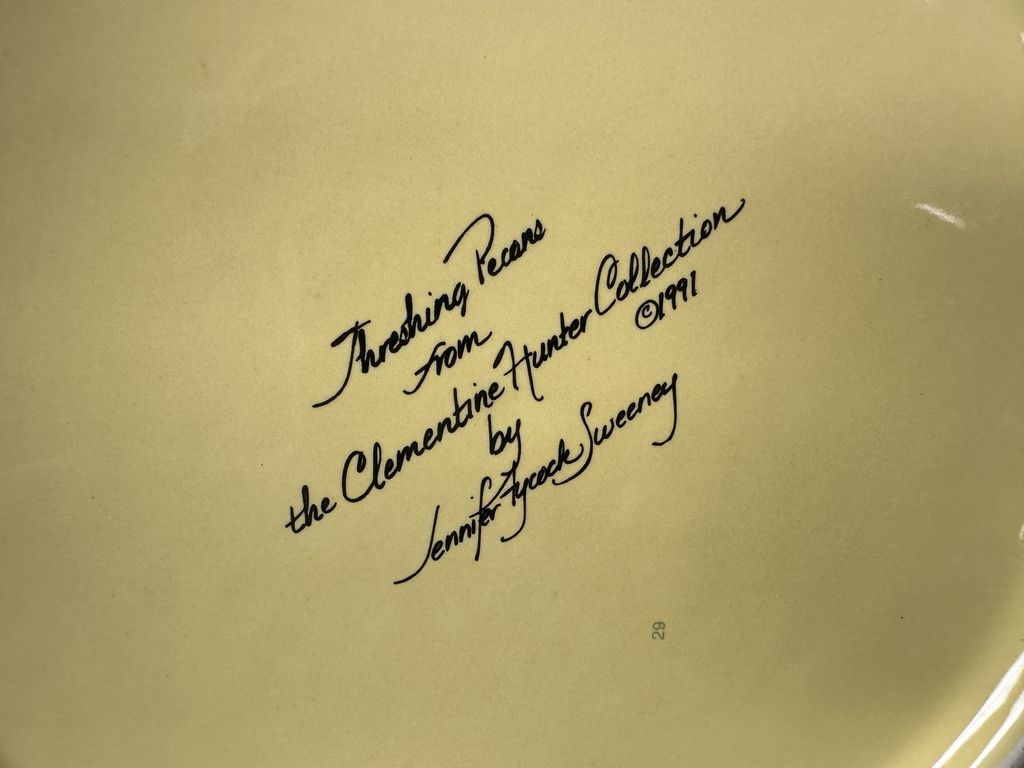 Threshing Pecans
from
the Clementine Hunter Collection
©1991
by
Jennifer Sweeney
29